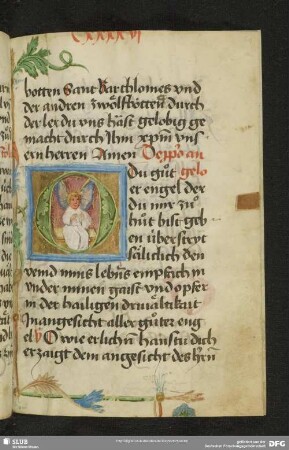 botten Sant Bartholomes vnd
der andren zwölffbotten durch
der ler du vns hast gelobig ge
macht durch Jhm xpm vns
ern herren Amen
Du gůt
er engel der
du mir zů
hůt bist geb
en
sälicklich den
vend mins lebens empfach in
vnder minen gaist vnd opfer
in der hailigen driuältikait
Jn angesicht aller gůter eng
el O wie erlich haustu dich
erzaigt dem angesicht des
SLUB
DFG